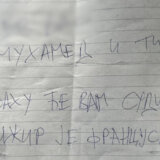 МУХАМЕД И ТИ
АХУ ЋЕ ВАМ СУДИ
ИХИР ЈЕ ФРАНЦУС